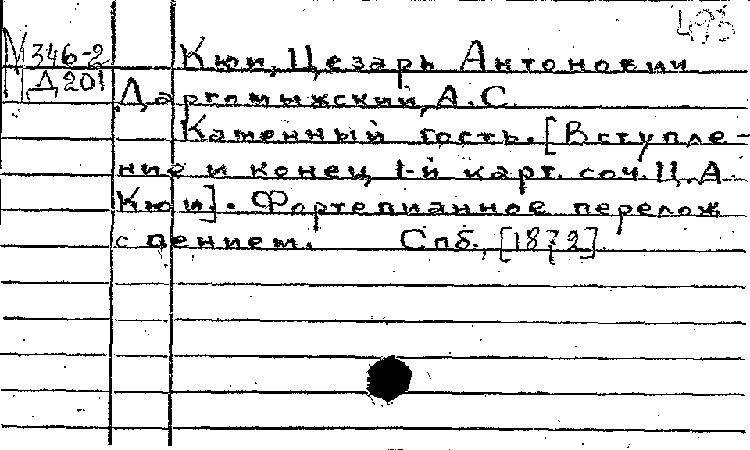 493
М 346-2 Кюи, Цезарь Антонович
Д 201 Даргомыжский, А.С.
Каменный гость. [Вступле-
ние и конец 1-й карт. соч. Ц.А.
Кюи]. Фортепианное перелож
с пением. Спб., [1872]